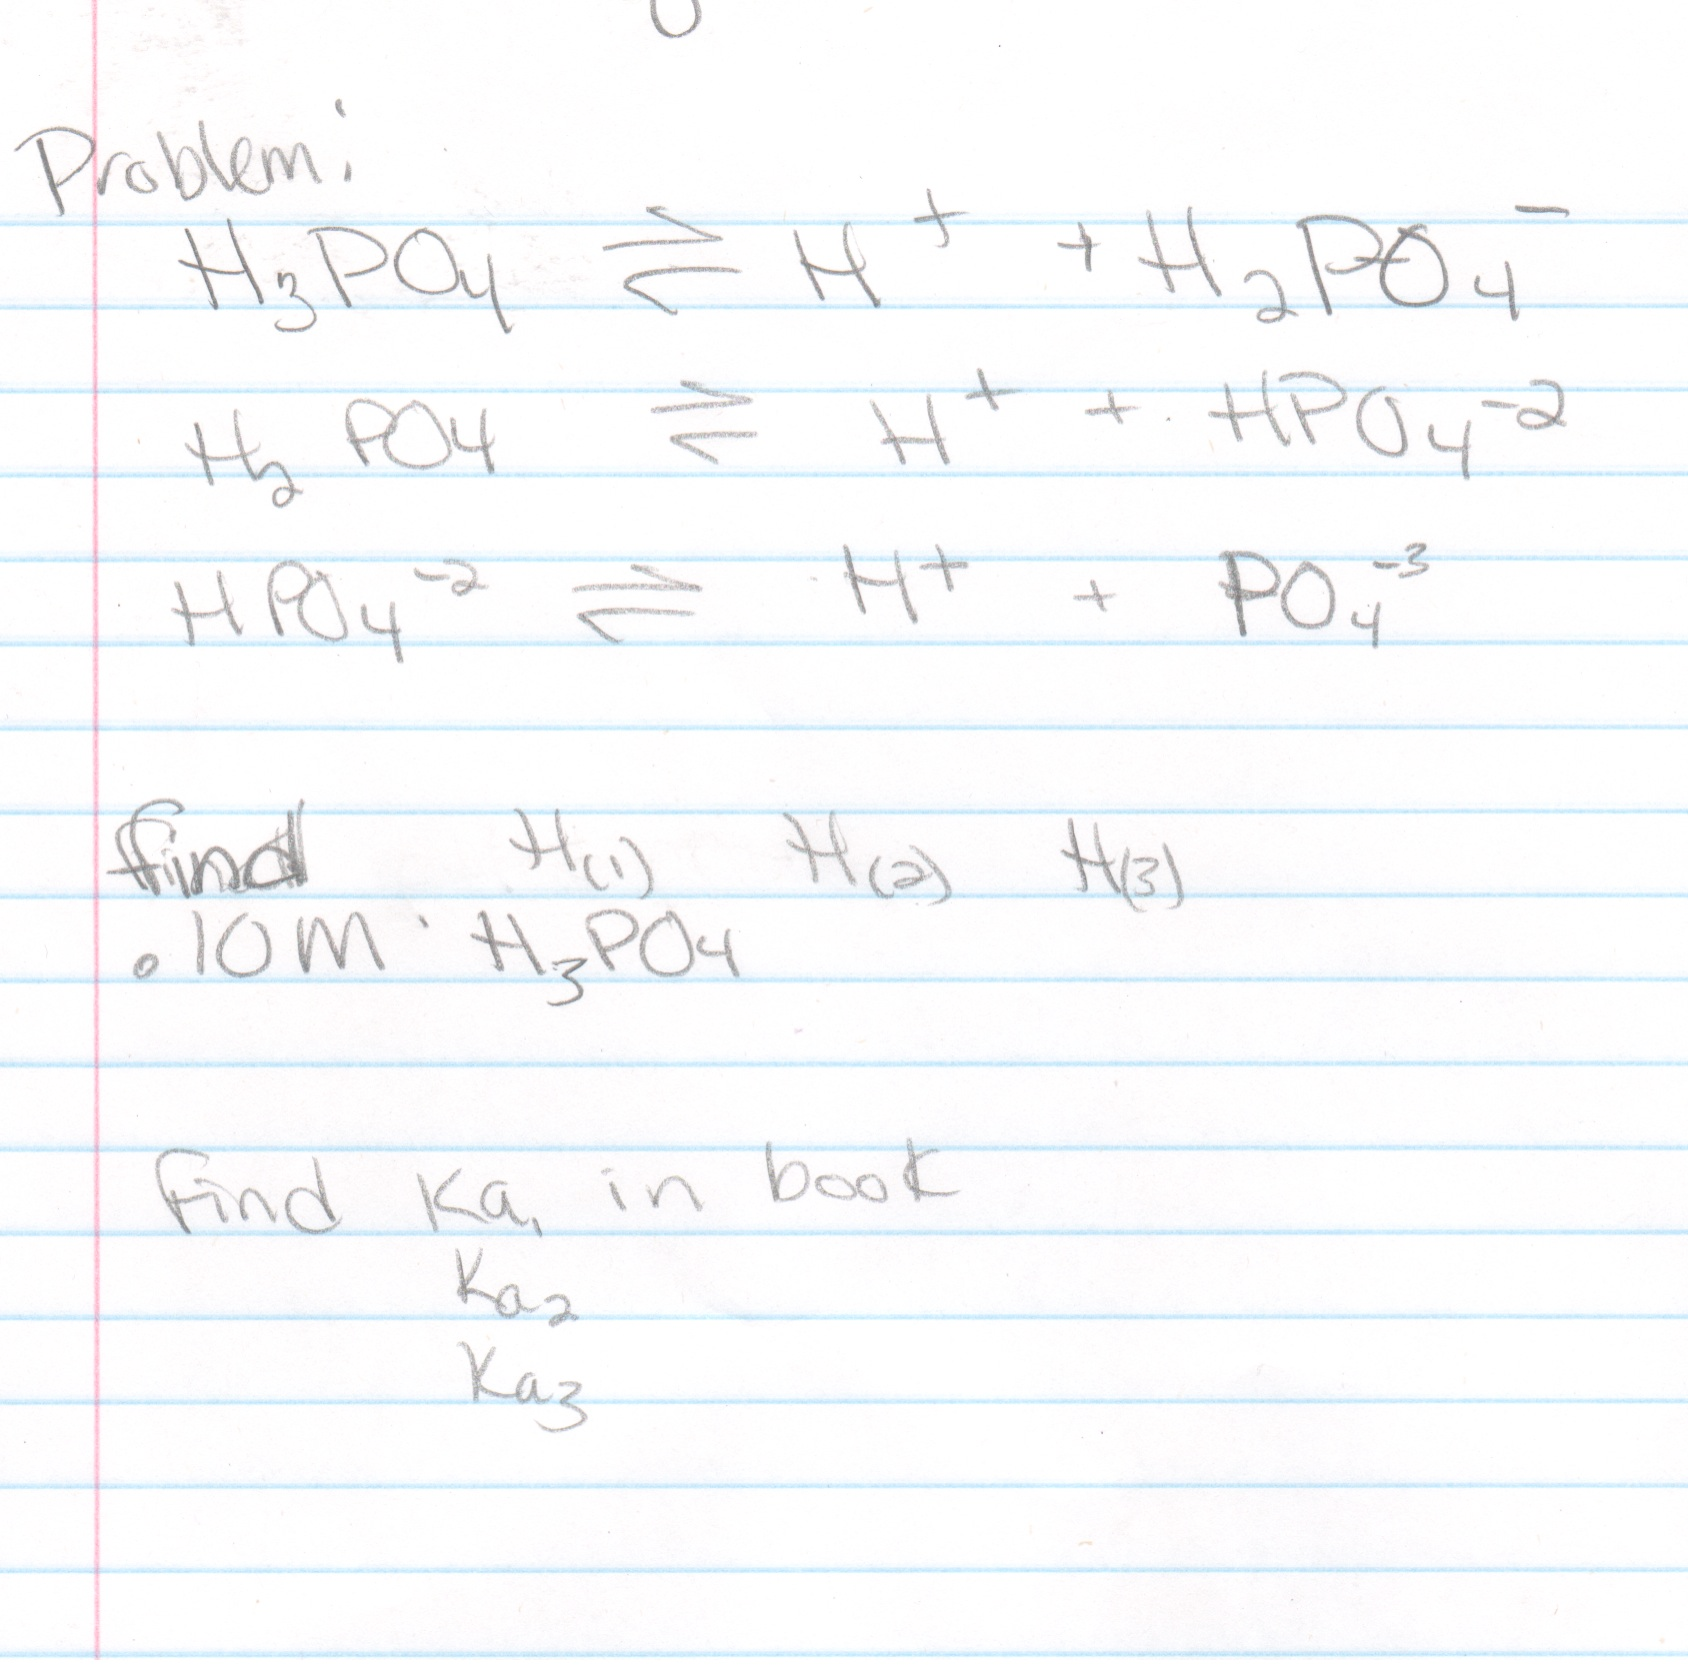 Problem:
H₃PO₄ ⇌ H⁺ + H₂PO₄⁻
H₂PO4 ⇌ H⁺ + HPO₄⁻²
HPO₄⁻² ⇌ H⁺ + PO₄⁻³
find H(1) H(2) H(3)
.10M H₃PO₄
find Ka₁ in book
Ka₂
Ka₃